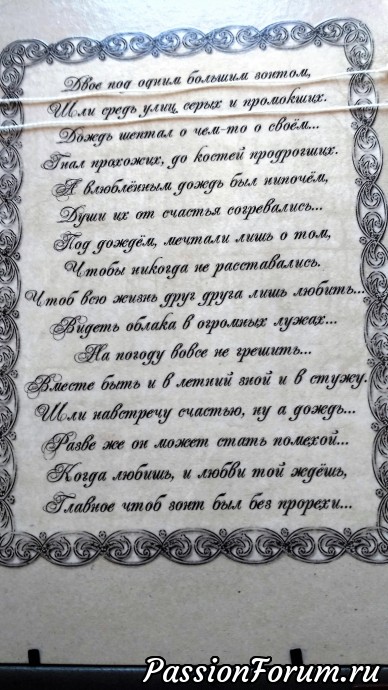 Двое под одним большим зонтом,
Шли средь улиц серых и промокших.
Дождь шептал о чем-то о своём...
Гнал прохожих, до костей продрогших.
А влюблённым дождь был нипочём,
Души их от счастья согревались...
Под дождём, мечтали лишь о том,
Чтобы никогда не расставались.
Чтоб всю жизнь друг друга лишь любить...
Видеть облака в огромных лужах...
На погоду вовсе не грешить...
Вместе быть и в летний зной и в стужу.
Шли навстречу счастью, ну а дождь...
Разве же он может стать помехой...
Когда любишь, и любви той ждёшь,
Главное чтоб зонт был без прорехи...
PassionForum.ru